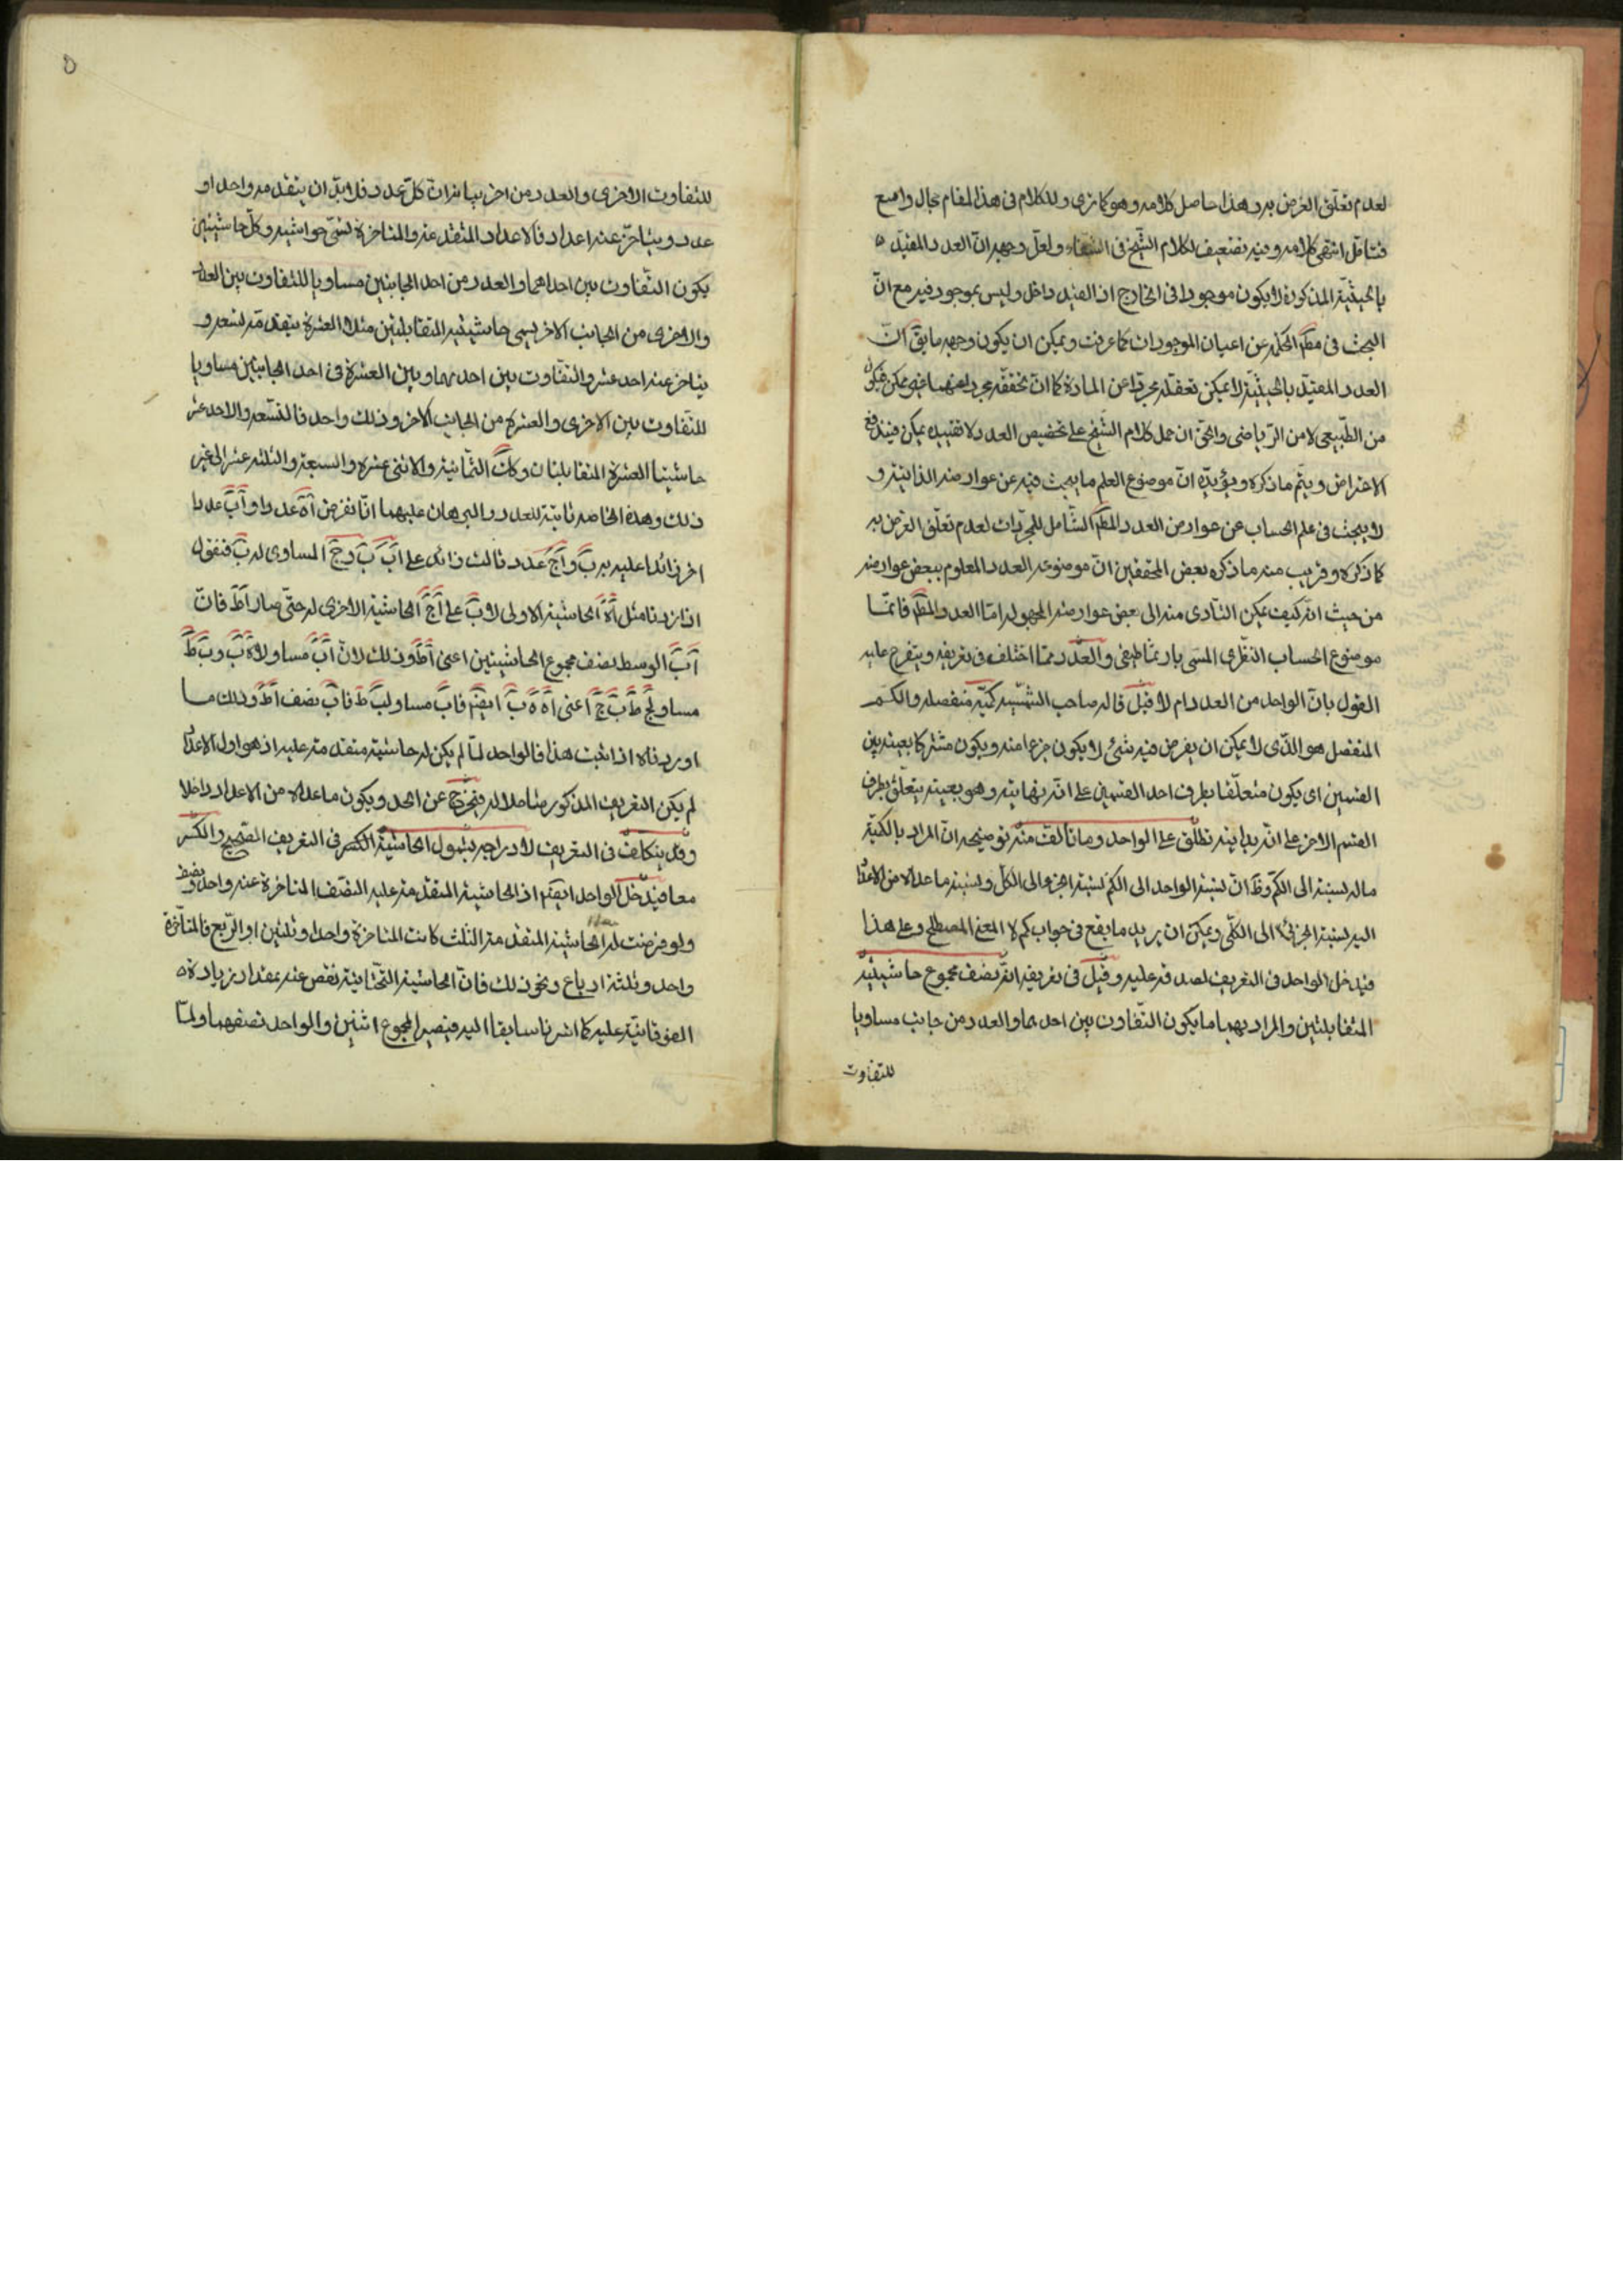 لعدم تعلق الغرض به وهذا حاصل كلامه وهو كما ترى وللكلام فى هذا المقام مجال واسع
فتأمل انتهى كلامه وفيه تضعيف لكلام الشيخ فى الشفاء ولعل وجهه ان العدد المقيد
بالحيثية المذكورة لا يكون موجودا فى الخارج اذ القيد داخل وليس بموجود فيه مع ان
البحث فى مطم الحكمة عن اعيان الموجودات كما عرفت ويمكن ان يكون وجهه ما يق ان
العدد المقيد بالحيثية لا يمكن تعقله مجردا عن المادة كما ان تحققه مجردا عنها غير ممكن فيكون
من الطبيعى لا من الرياضى والحق ان حمل كلام الشيخ على تخصيص العدد لا تقييده يمكن فيندفع
الاعتراض ويتم ما ذكره ويؤيده ان موضوع العلم ما يبحث فيه عن عوارضه الذاتية و
لا يبحث فى علم الحساب عن عوارض العدد المطم الشامل للمجردات لعدم تعلق الغرض به
كما ذكره وقريب منه ما ذكره بعض المحققين ان موضوعه العدد المعلوم ببعض عوارضه
من حيث انه كيف يمكن التادى منه الى بعض عوارضه المجهولة اما العدد المطم فانما
موضوع الحساب النظرى المسمى بارثماطيقى والعدد مما اختلف فى تعريفه ويتفرع عليه
القول بان الواحد من العدد ام لا قيل قاله صاحب الشمسيه كمية منفصله والكم
المنفصل هو الذى لا يمكن ان يفرض فيه شئ لا يكون جزءا منه ويكون مشتركا بعينه بين
القسمين اى يكون متعلقا بطرف احد القسمين على انه نهايته وهو بعينه يتعلق بطرف
القسم الاخر على انه بدايته تطلق على الواحد وما تألف منه توضيحه ان المراد بالكمية
ماله نسبة الى الكم وظ ان نسبة الواحد الى الكم نسبة الجزء الى الكل ونسبة ما عداه من الاعداد
اليه نسبة الجزئى الى الكلى ويمكن ان يريد ما يقع فى جواب كم لا المعنى المصطلح وعلى هذا
فيدخل الواحد فى التعريف لصدقه عليه وقيل فى تعريفه انه نصف مجموع حاشيتيه
المتقابلتين والمراد بهما ما يكون التفاوت بين احدهما والعدد من جانب مساويا
للتفاوت
للتفاوت الاخرى والعدد من اخر بيانه ان كل عدد فلا بد ان يتقدمه واحد او
عدد ويتاخر عنه اعداد فالاعداد المتقدمة عنه والمتاخرة تسمى حواشيه وكل حاشيتين
يكون التفاوت بين احداهما والعدد من احد الجانبين مساويا للتفاوت بين العدد
والاخرى من الجانب الاخر يسمى حاشيتيه المتقابلتين مثلا العشرة يتقدمه تسعه و
يتاخر عنه احد عشر والتفاوت بين احدهما وبين العشرة فى احد الجانبين مساويا
للتفاوت بين الاخرى والعشرة من الجانب الاخر وذلك واحد فالتسعه والاحد عشر
حاشيتا العشرة المتقابلتان وكك الثمانية والاثنى عشره والسبعة والثلثه عشر الى غير
ذلك وهذه الخاصه ثابتة للعدد والبرهان عليهما انا نفرض اه عددا واب عددا
اخر زائدا عليه ب ه ب واج عدد ثالث زائد على اب ب ب ج المساوى له ب فنقول
اذا زدنا مثل اه الحاشية الاولى على اج الحاشية الاخرى له حتى صار اط فان
اب الوسط نصف مجموع الحاشيتين اعنى اط وذلك لان اب مساو لاه ه ب و ب ط
مساو لج ط ب ج اعنى اه ه ب ايضا فاب مساو لب ط فاب نصف اط وذلك ما
اوردناه اذا ثبت هذا فالواحد لما لم يكن له حاشية متقدمة عليه اذ هو اول الاعداد
لم يكن التعريف المذكور شاملا له فيخرج عن الحد ويكون ما عداه من الاعداد داخلا
وقد يتكلف فى التعريف لادراجه بشمول الحاشية الكسر فى التعريف الصحيح والكسر
معا فيدخل الواحد ايضا اذ الحاشية المتقدمة عليه النصف المتاخرة عنه واحد ونصف
ولو فرضت له الحاشية المتقدمة الثلث كانت المتاخرة واحدا وثلثين او الربع فالمتأخرة
واحد وثلثة ارباع ونحو ذلك فان الحاشية التحتانية نقص عنه بمقدار زيادة
الفوقانية عليه كما اشرنا سابقا اليه فيصير المجموع اثنين والواحد نصفهما ولما